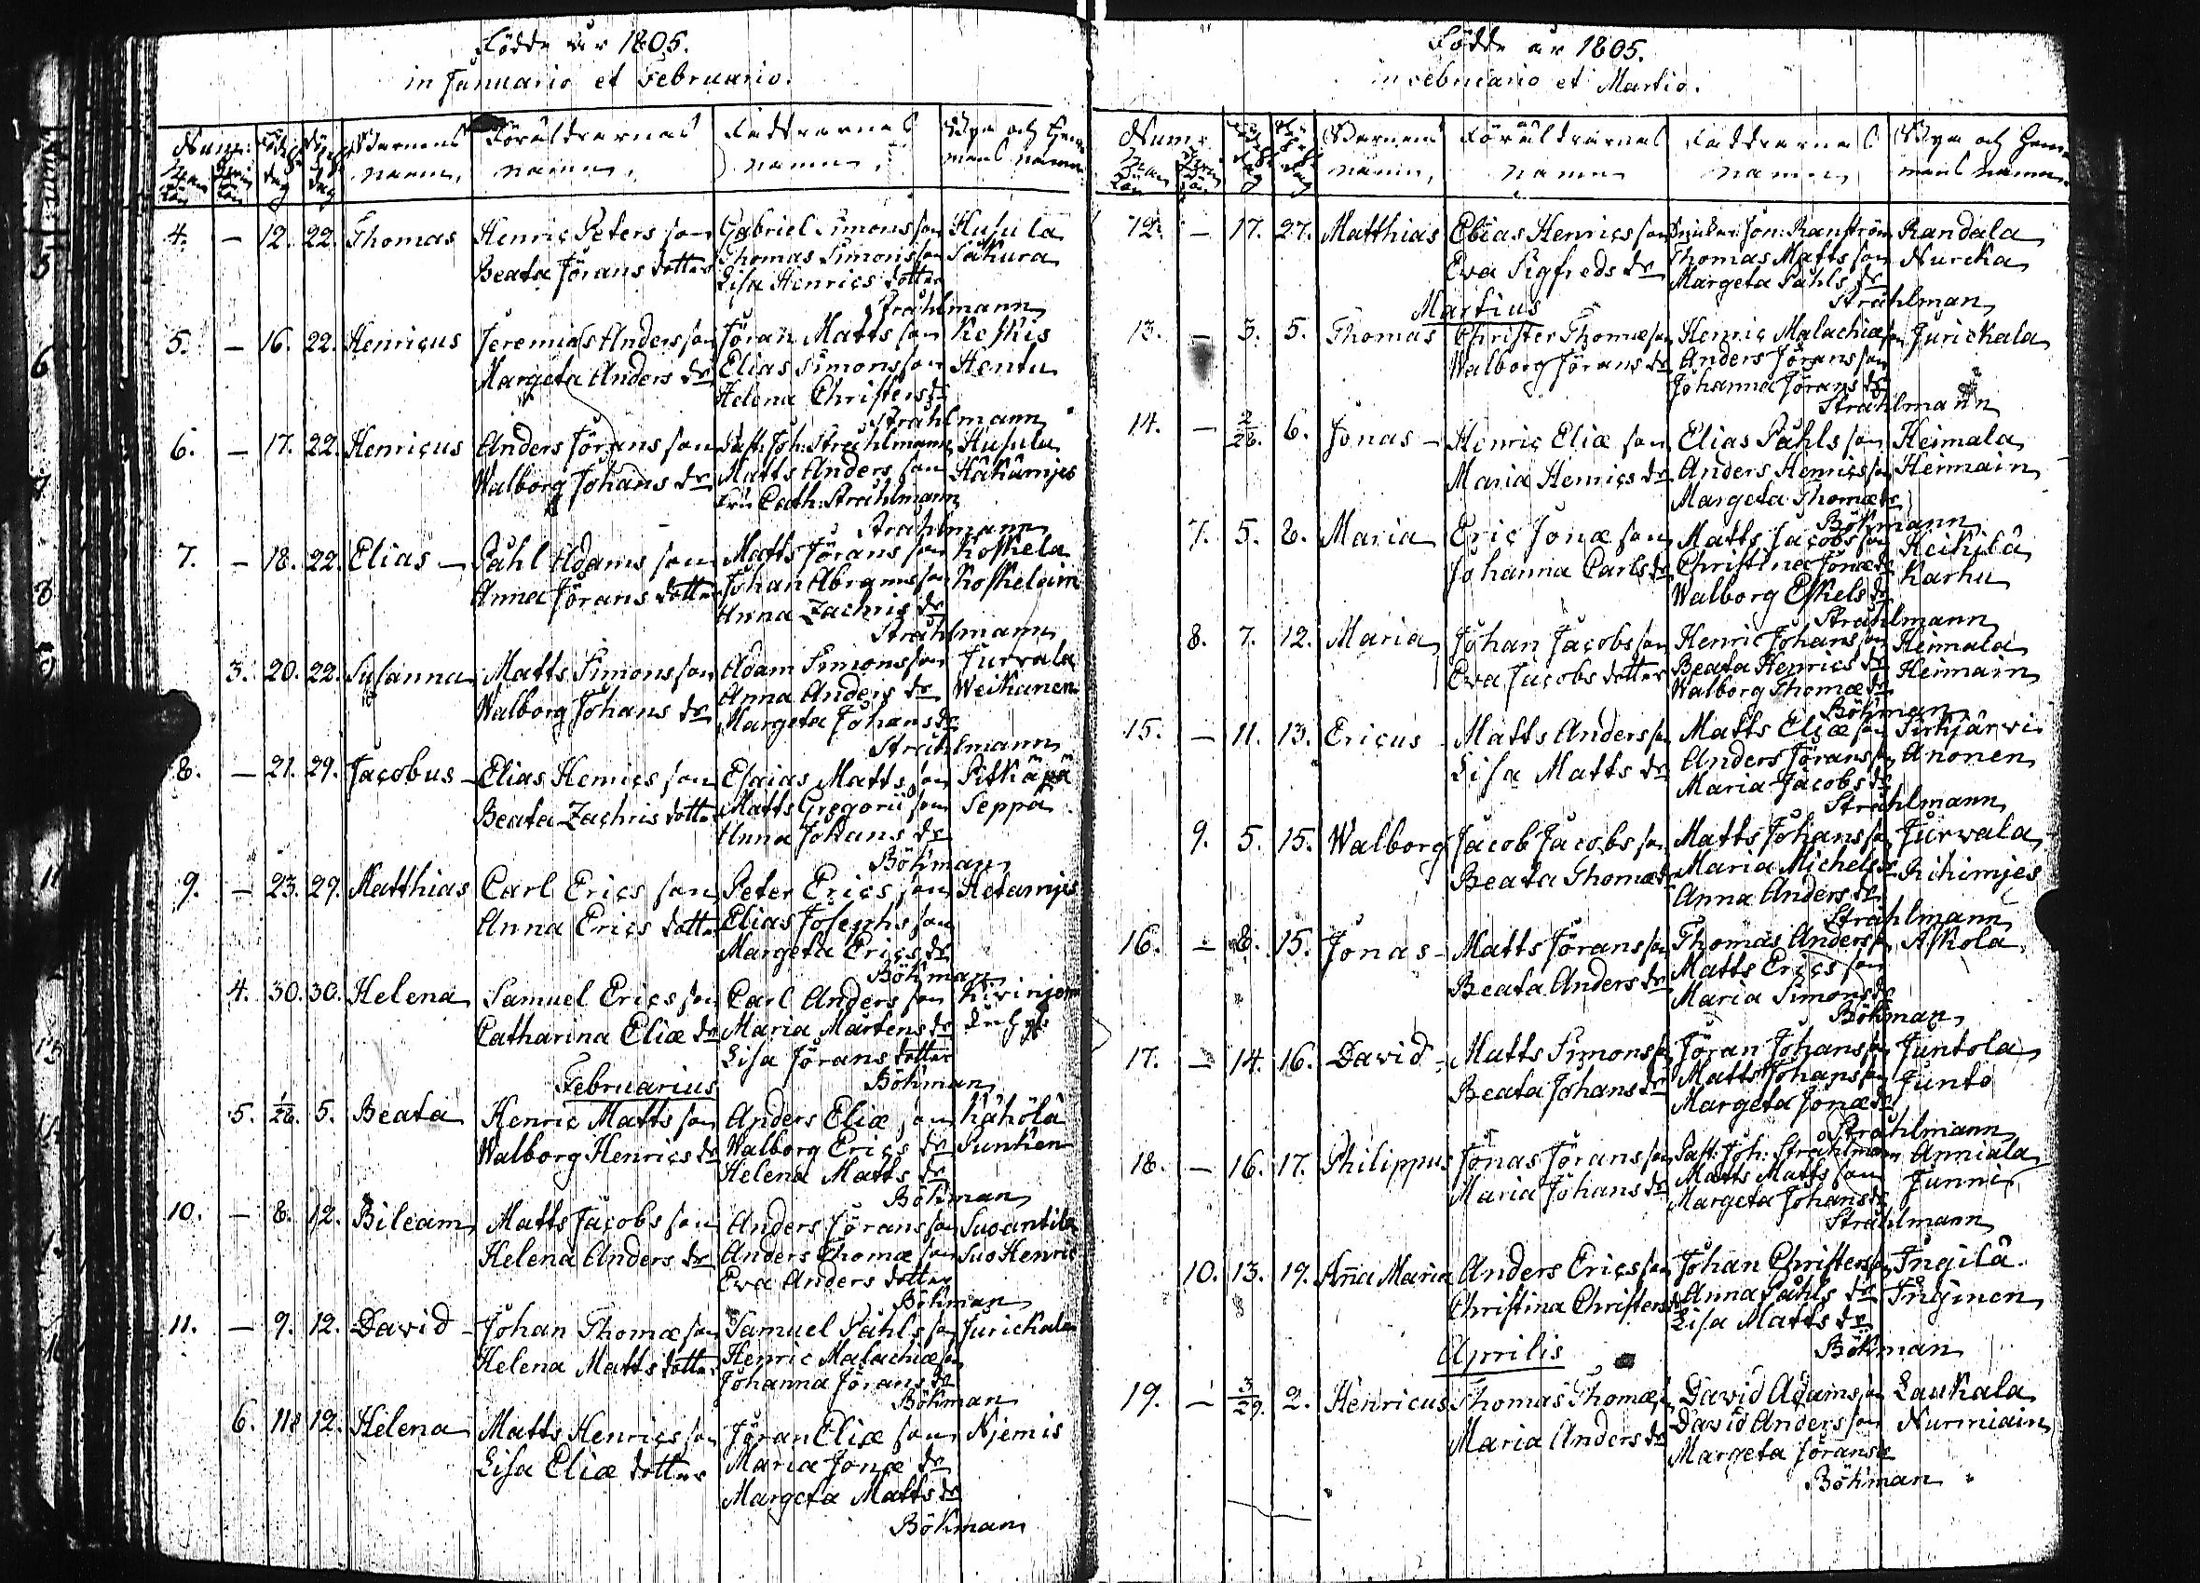 Födde år 1805.
in Januario et Februario.
Num: Födelse dag Döpelse dag Barnens namn, Föräldrarnas namn, Faddrarnas namn, Byn och Hemmans namn
4. — 12. 22. Thomas Henric Peters son Gabriel Simons son Husula
Beata Jörans dotter Thomas Simons son Sakura
Lisa Henrics dotter
Strahlmann
5. — 16. 22. Henricus Jeremias Anders son Jöran Matts son Keskis
Margeta Anders dr Elias Simons son Hentu
Helena Christers dr
Strahlmann
6. — 17. 22. Henricus Anders Jörans son Past: Joh: Strahlmann Husula
Walborg Johans dr Matts Anders son Hakamjes
Fru Cath: Strahlmann
Strahlmann
7. — 18. 22. Elias — Påhl Adams son Matts Jörans son Koskela
Anna Jörans dotter Johan Abrams son Koskelain
Anna Zachris dr
Strahlmann
3. 20. 22. Susanna Matts Simons son Adam Simons son Jurvala
Walborg Johans dr Anna Anders dr Weikanen
Margeta Johans dr
Strahlmann
8. — 21. 29. Jacobus — Elias Henrics son Esaias Matts son Pitkäpä
Beata Zachris dotter Matts Gregorii son Seppä
Anna Johans dr
Böhman
9. — 23. 29. Matthias Carl Erics son Peter Erics son Hetamjes
Anna Erics dotter Elias Josephs son
Margeta Erics dr
Böhman
4. 30. 30. Helena Samuel Erics son Carl Anders son
Catharina Eliæ dr Maria Mårtens dr
Lisa Jörans dotter
Februarius Böhman
5. 1/26. 5. Beata Henric Matts son Anders Eliæ son Kähölä
Walborg Henrics dr Walborg Erics dr Sunken
Helena Matts dr
Böhman
10. — 8. 12. Bileam Matts Jacobs son Anders Jörans son Suoantila
Helena Anders dr Anders Thomæ son Suo Henric
Eva Anders dotter
Böhman
11. — 9. 12. David — Johan Thomæ son Samuel Påhls son Jurickala
Helena Matts dotter Henric Malachiæ son
Johanna Jörans dr
Böhman
6. 11. 12. Helena Matts Henrics son Jöran Eliæ son Njemis
Lisa Eliæ dotter Maria Jonæ dr
Margeta Matts dr
Böhman
Födde år 1805.
in Februario et Martio.
Num: Barnens namn, Föräldrarnas namn Faddrarnas namn, Byn och Hemmans namn
12. — 17. 27. Matthias Elias Henrics son Ranström Randala
Eva Sigfreds dr Thomas Matts son Nurcka
Margeta Påhls dr
Strahlman
Martius
13. — 3. 5. Thomas Christer Thomæ son Henric Malachiæ son Jurickala
Walborg Jörans dr Anders Jörans son
Johanna Jörans dr
Strahlmann
14. — 2/26. 6. Jonas — Henric Eliæ son Elias Påhls son Heimala
Maria Henrics dr Anders Henrics son Heimain
Margeta Thomæ dr
Böhmann
7. 5. 8. Maria Eric Jonæ son Matts Jacobs son Heikilä
Johanna Carls dr Christina Jonæ dr Karhu
Walborg Eskels dr
Strahlmann
8. 7. 12. Maria Johan Jacobs son Henric Johans son Heimala
Eva Jacobs dotter Beata Henrics dr Heimain
Walborg Thomæ dr
Böhman
15. — 11. 13. Ericus Matts Anders son Matts Eliæ son Sirkjärvi
Lisa Matts dr Anders Jörans son Anonen
Maria Jacobs dr
Strahlmann
9. 5. 15. Walborg Jacob Jacobs son Matts Johans son Jurvala
Beata Thomæ dr Maria Michels dr Rihimjes
Anna Anders dr
Strahlmann
16. — 8. 15. Jonas — Matts Jörans son Thomas Anders son Askola
Beata Anders dr Matts Erics son
Maria Simons dr
Böhman
17. — 14. 16. David — Matts Simons son Jöran Johans son Juntola
Beata Johans dr Matts Johans son Junto
Margeta Jonæ dr
Strahlmann
18. — 16. 17. Philippus Jonas Jörans son Past: Joh: Strahlmann Anniala
Maria Johans dr Matts Matts son Junni
Margeta Johans dr
Strahlmann
10. 13. 19. Anna Maria Anders Erics son Johan Christers son Ingilä
Christina Christers dr Anna Påhls dr Inginen
Lisa Matts dr
Aprilis Böhman
19. — 3/29. 2. Henricus Thomas Thomæ son David Adams son Laukala
Maria Anders dr David Anders son Nurmiain
Margeta Jörans dr
Böhman